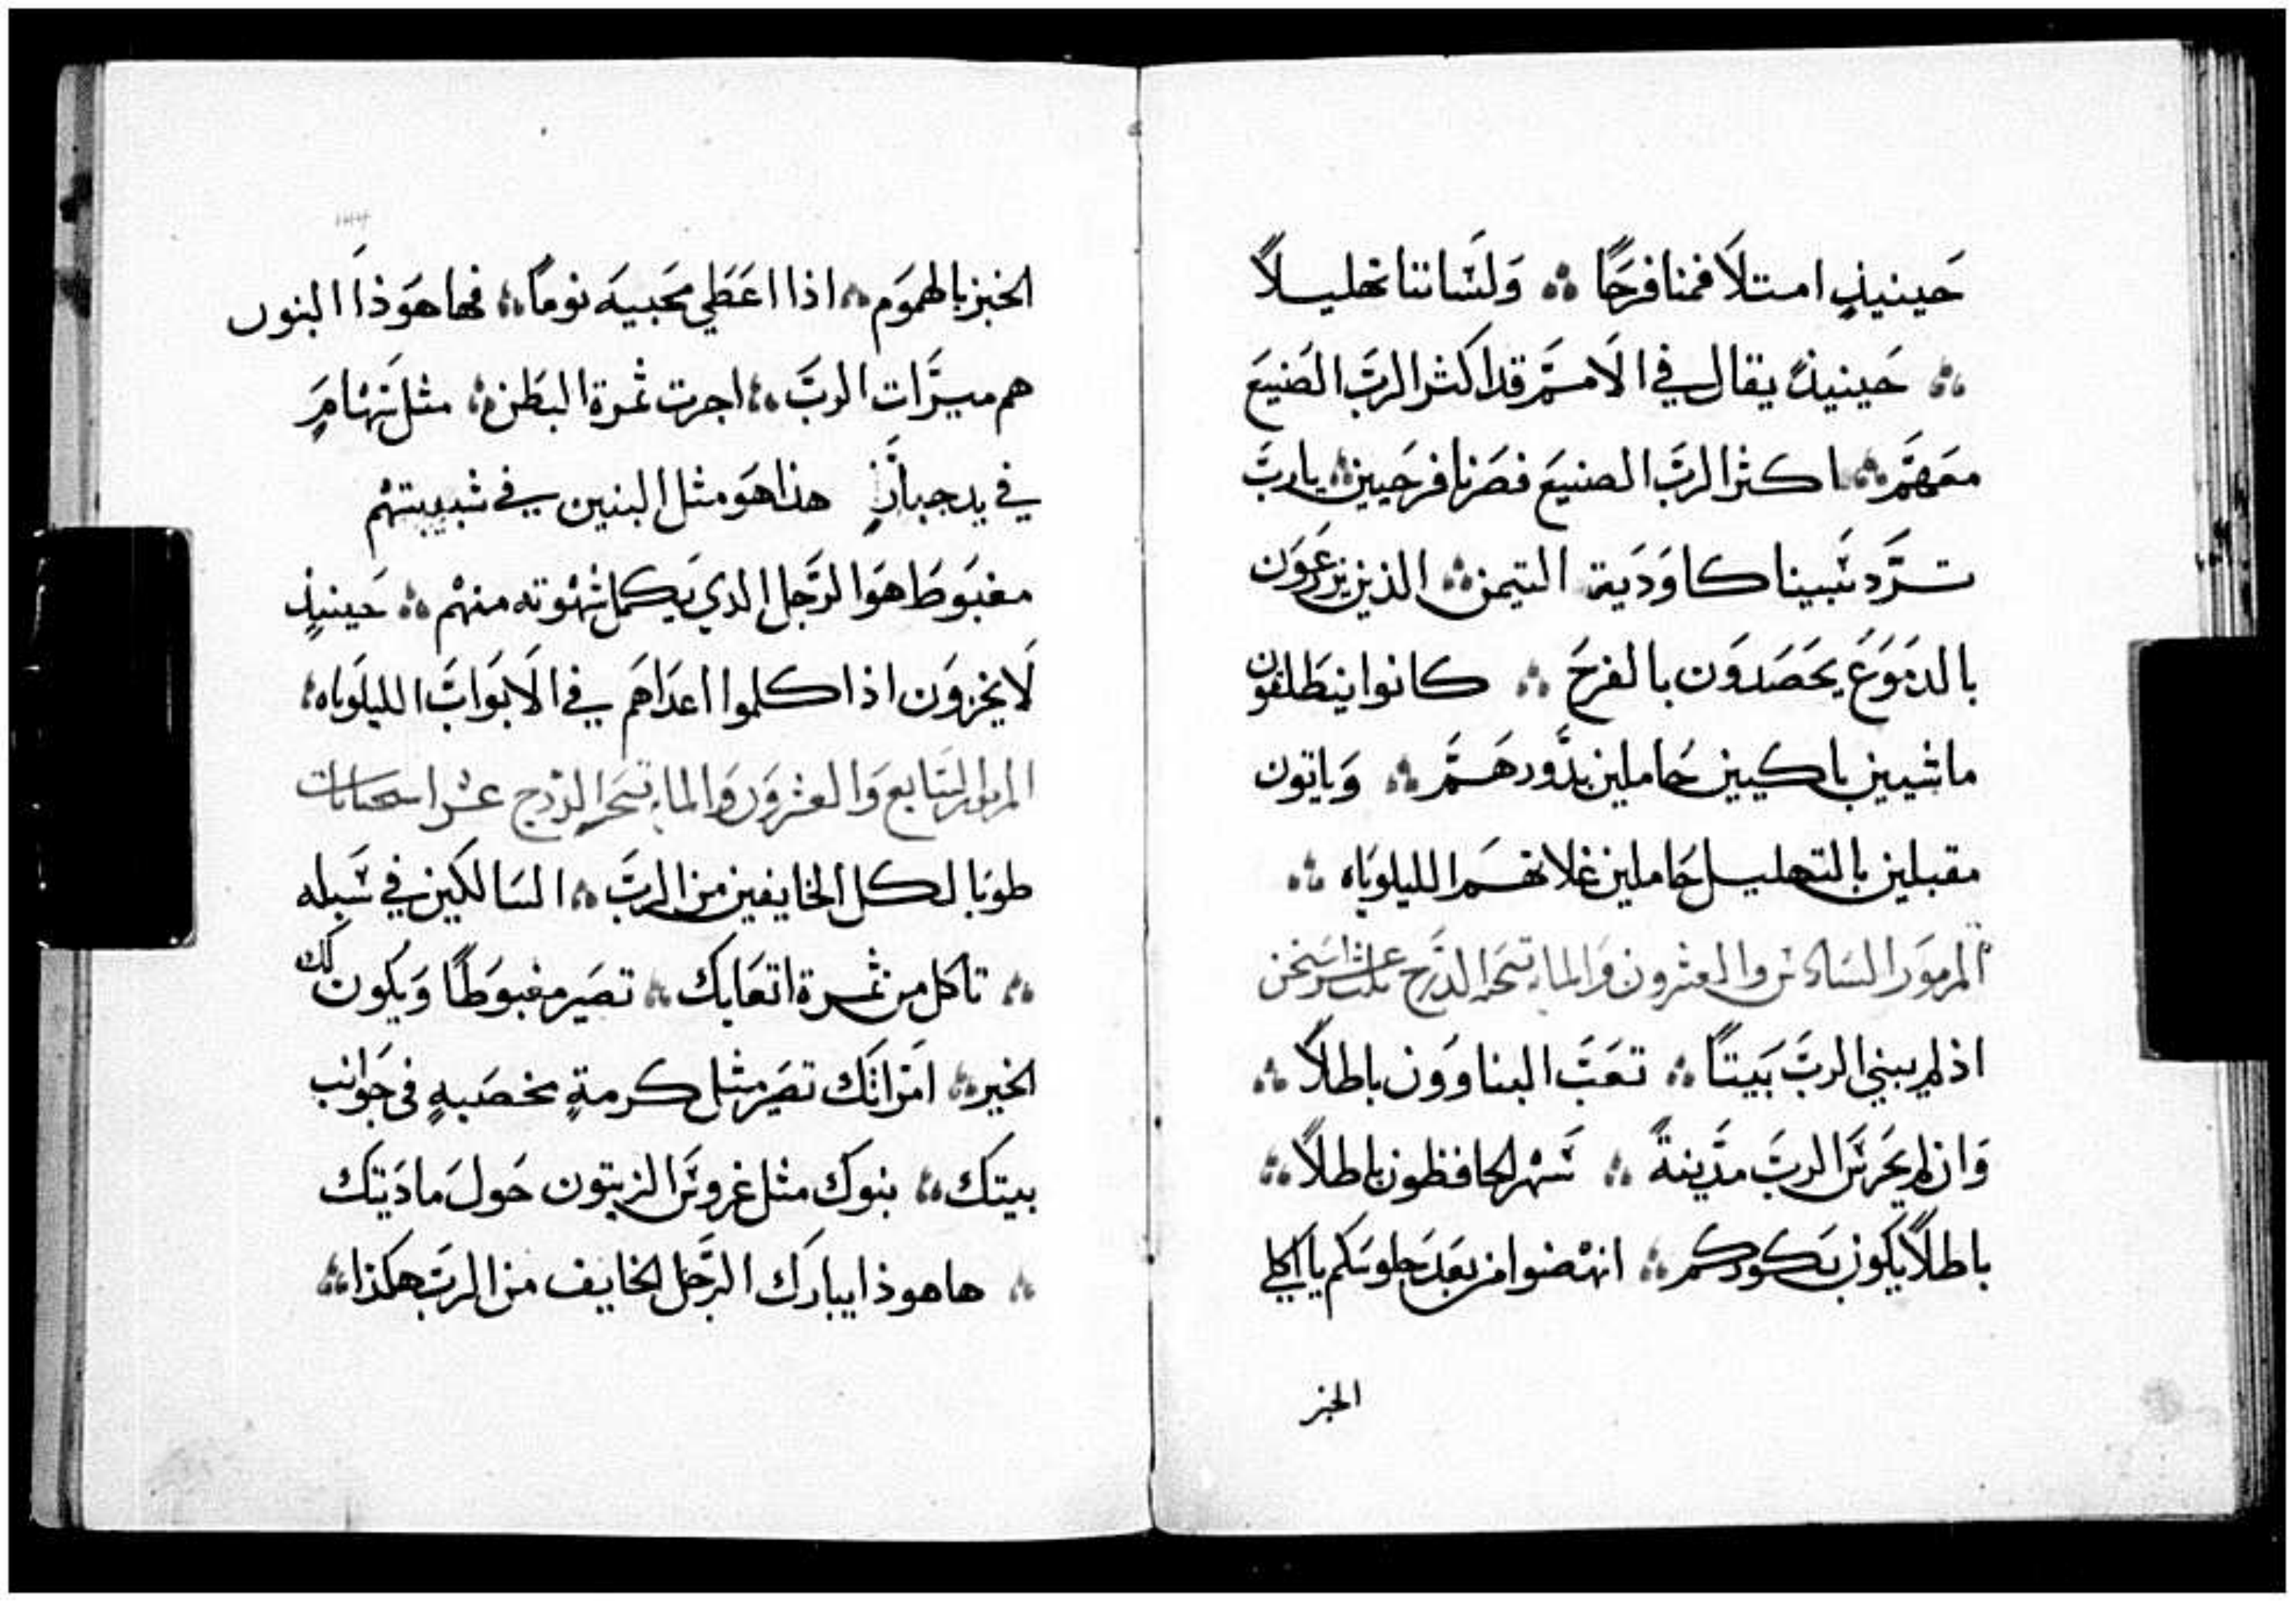 حَينيذٍ امتلاَ فمنا فرحًا ۞ وَلسَاننا تهليلاً
۞ حَينيذٍ يقال في الاَمم قد اكثر الربَّ الصَنيعَ
معَهمَّ ۞ اكثر الربَّ الصنيعَ فصَرنا فرحَيين ۞ يا ربَّ
تَردّ سَبينا كاوَدَية التيمن ۞ الذين يزرعَوَن
بالدمَوَعَ يحَصَدوَن بالفرحَ ۞ كانوا ينطَلقوَن
ماشيين باكيين حَاملين بدَورهَم ۞ وَياتون
مقبلين بالتهليل حَاملين غلاتهَم الليلوَياه ۞
المزموَر السَادس والعشرون وَالمايه تسَحَة الدَرَج
اذ لم يبني الربَّ بَيتاً ۞ تعَبَ البناووَن باطلاً ۞
وَان لم يحَرسَ الربَّ مدَينةً ۞ سَهر الحافظون باطلاً ۞
باطلاً يكون بَكوركم ۞ انهَضوا من بعَد جلوسَكم يا اكلي
الخبز
الخبز بالهموَم ۞ اذا اعَطَي محَبيهَ نوماً ۞ فها هوَذا البنون
هم ميرَات الربَّ ۞ اجرت ثمرة البطَن ۞ مثل سَهامٍ
في يد جبارٍ هذا هوَ مثل البنين في شبيبتهم
مغبَوطَ هوَ الرَجل الذي يَكمل شهوته منهم ۞ حَينيذٍ
لاَ يخزوَن اذا كلموا اعدَاهَم في الاَبوَابَ الليلوَياه ۞
المزمور السَابع وَالعشروَن وَالمايه تسَحَة الدَرج عشر استحانات
طوبَا لكل الخايفين من الربَّ ۞ السَالكين في سَبله
۞ تاكل من ثمرة اتعَابك ۞ تصَير مغبوَطًا وَيكون لك
الخير ۞ امَراتَك تصَير مثل كرمةٍ مخصَبهٍ في جَوانب
بيتك ۞ بنوك مثل غروسَ الزيتون حَولَ مادَيتك
۞ ها هوذا يبارَك الرَجل الخايف من الربَّ هكذا ۞